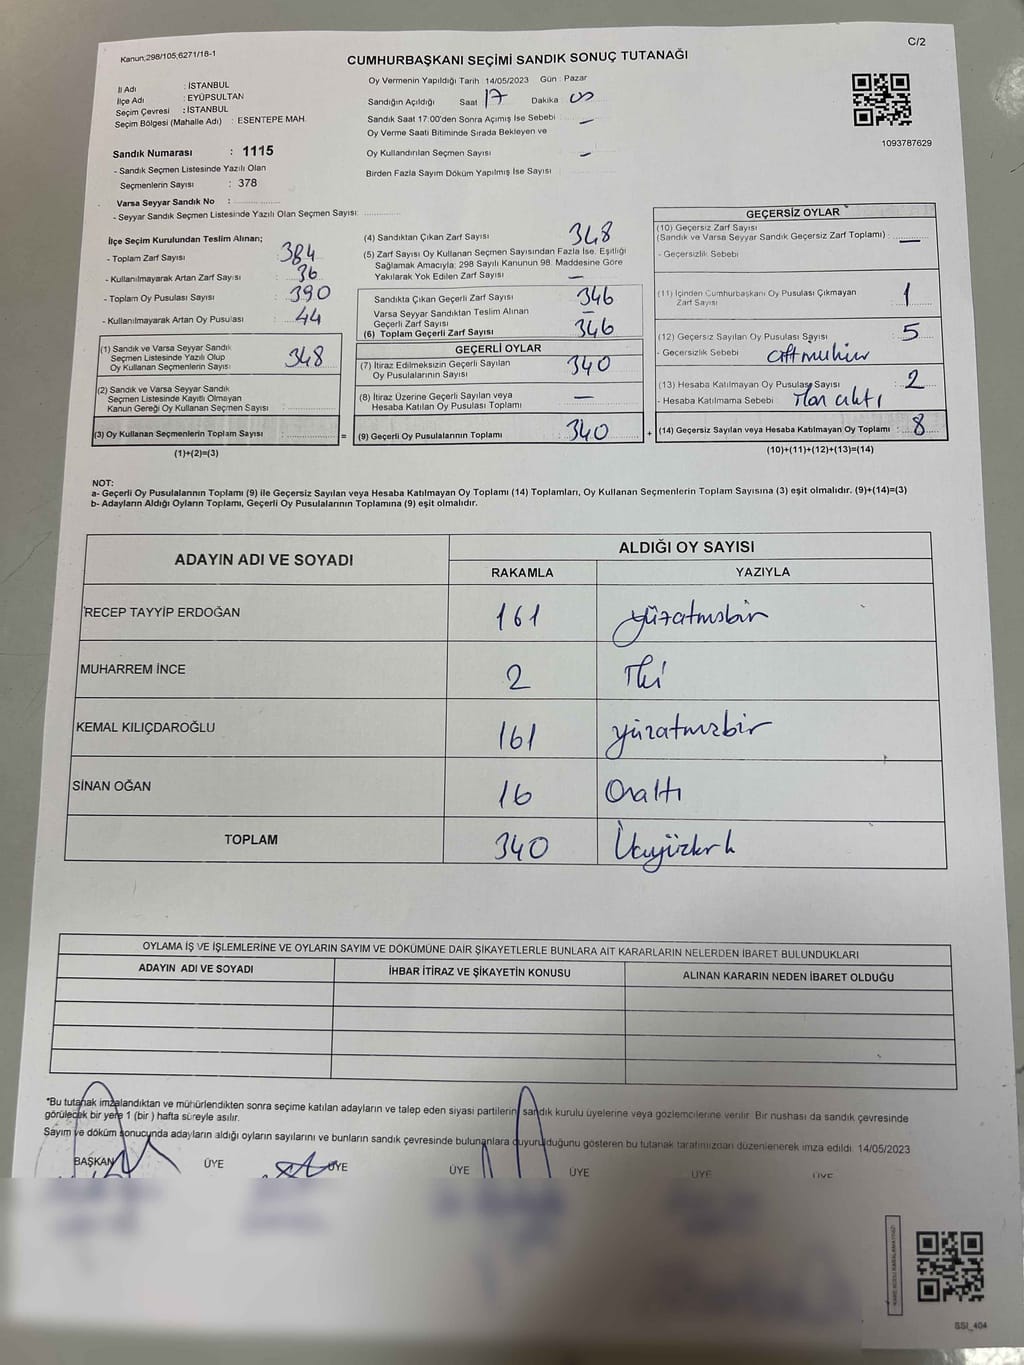 Kanun;298/105;6271/18-1
C/2
CUMHURBAŞKANI SEÇİMİ SANDIK SONUÇ TUTANAĞI
İl Adı : İSTANBUL
İlçe Adı : EYÜPSULTAN
Seçim Çevresi : İSTANBUL
Seçim Bölgesi (Mahalle Adı) : ESENTEPE MAH.
Oy Vermenin Yapıldığı Tarih : 14/05/2023 Gün : Pazar
Sandığın Açıldığı Saat 17 Dakika
Sandık Saat 17:00'den Sonra Açımış İse Sebebi : —
Oy Verme Saati Bitiminde Sırada Bekleyen ve
Oy Kullandırılan Seçmen Sayısı : —
Birden Fazla Sayım Döküm Yapılmış İse Sayısı :
1093787629
Sandık Numarası : 1115
- Sandık Seçmen Listesinde Yazılı Olan
Seçmenlerin Sayısı : 378
Varsa Seyyar Sandık No :
- Seyyar Sandık Seçmen Listesinde Yazılı Olan Seçmen Sayısı:
İlçe Seçim Kurulundan Teslim Alınan;
- Toplam Zarf Sayısı : 384
- Kullanılmayarak Artan Zarf Sayısı : 36
- Toplam Oy Pusulası Sayısı : 390
- Kullanılmayarak Artan Oy Pusulası : 44
(1) Sandık ve Varsa Seyyar Sandık
Seçmen Listesinde Yazılı Olup
Oy Kullanan Seçmenlerin Sayısı : 348
(2) Sandık ve Varsa Seyyar Sandık
Seçmen Listesinde Kayıtlı Olmayan
Kanun Gereği Oy Kullanan Seçmen Sayısı :
(3) Oy Kullanan Seçmenlerin Toplam Sayısı :
(1)+(2)=(3)
(4) Sandıktan Çıkan Zarf Sayısı : 348
(5) Zarf Sayısı Oy Kullanan Seçmen Sayısından Fazla İse, Eşitliği
Sağlamak Amacıyla; 298 Sayılı Kanunun 98. Maddesine Göre
Yakılarak Yok Edilen Zarf Sayısı : —
Sandıkta Çıkan Geçerli Zarf Sayısı : 346
Varsa Seyyar Sandıktan Teslim Alınan
Geçerli Zarf Sayısı : —
(6) Toplam Geçerli Zarf Sayısı : 346
GEÇERLİ OYLAR
(7) İtiraz Edilmeksizin Geçerli Sayılan
Oy Pusulalarının Sayısı : 340
(8) İtiraz Üzerine Geçerli Sayılan veya
Hesaba Katılan Oy Pusulası Toplamı : —
= (9) Geçerli Oy Pusulalarının Toplamı : 340
GEÇERSİZ OYLAR
(10) Geçersiz Zarf Sayısı
(Sandık ve Varsa Seyyar Sandık Geçersiz Zarf Toplamı) : —
- Geçersizlik Sebebi
(11) İçinden Cumhurbaşkanı Oy Pusulası Çıkmayan
Zarf Sayısı : 1
(12) Geçersiz Sayılan Oy Pusulası Sayısı : 5
- Geçersizlik Sebebi : çift mühür
(13) Hesaba Katılmayan Oy Pusulası Sayısı : 2
- Hesaba Katılmama Sebebi :
+ (14) Geçersiz Sayılan veya Hesaba Katılmayan Oy Toplamı : 8
(10)+(11)+(12)+(13)=(14)
NOT:
a- Geçerli Oy Pusulalarının Toplamı (9) ile Geçersiz Sayılan veya Hesaba Katılmayan Oy Toplamı (14) Toplamları, Oy Kullanan Seçmenlerin Toplam Sayısına (3) eşit olmalıdır. (9)+(14)=(3)
b- Adayların Aldığı Oyların Toplamı, Geçerli Oy Pusulalarının Toplamına (9) eşit olmalıdır.
ADAYIN ADI VE SOYADI
ALDIĞI OY SAYISI
RAKAMLA YAZIYLA
RECEP TAYYİP ERDOĞAN 161 yüzatmışbir
MUHARREM İNCE 2 İki
KEMAL KILIÇDAROĞLU 161 yüzatmışbir
SİNAN OĞAN 16 Onaltı
TOPLAM 340 Üçyüzkırk
OYLAMA İŞ VE İŞLEMLERİNE VE OYLARIN SAYIM VE DÖKÜMÜNE DAİR ŞİKAYETLERLE BUNLARA AİT KARARLARIN NELERDEN İBARET BULUNDUKLARI
ADAYIN ADI VE SOYADI İHBAR İTİRAZ VE ŞİKAYETİN KONUSU ALINAN KARARIN NEDEN İBARET OLDUĞU
*Bu tutanak imzalandıktan ve mühürlendikten sonra seçime katılan adayların ve talep eden siyasi partilerin sandık kurulu üyelerine veya gözlemcilerine verilir. Bir nushası da sandık çevresinde
görülecek bir yere 1 (bir ) hafta süreyle asılır.
Sayım ve döküm sonucunda adayların aldığı oyların sayılarını ve bunların sandık çevresinde bulunanlara duyurulduğunu gösteren bu tutanak tarafımızdan düzenlenerek imza edildi. 14/05/2023
BAŞKAN ÜYE ÜYE ÜYE ÜYE ÜYE ÜYE
SSI_404